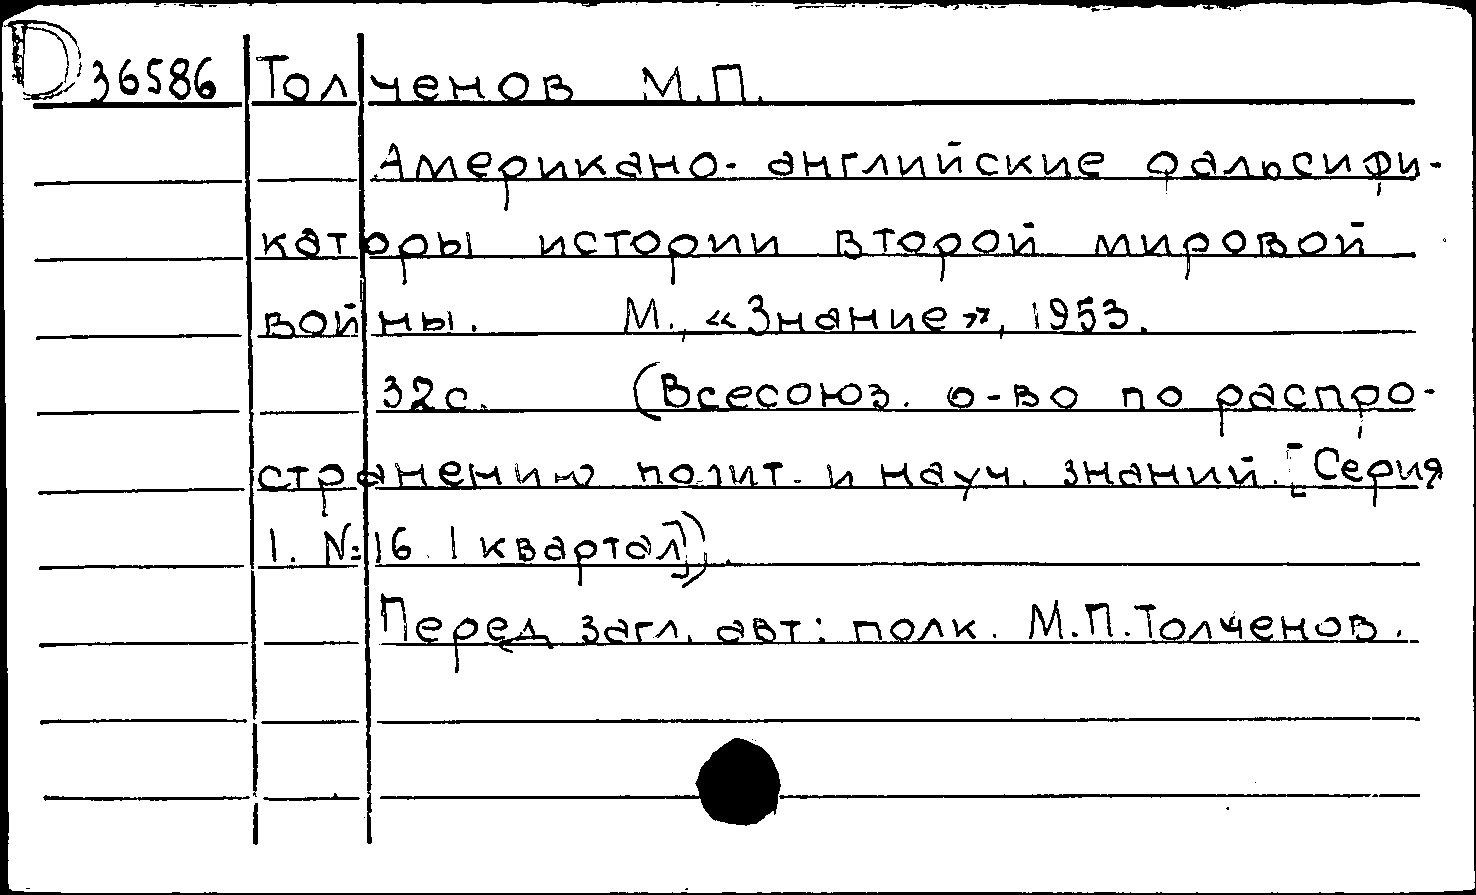 D 36586 Толченов М.П.
Американо-английские фальсифи-
каторы истории второй мировой
войны. М., «Знание», 1953.
32с. (Всесоюз. о-во по распро-
странению полит. и науч. знаний. [Серия
1. №16. 1 квартал]).
Перед загл. авт: полк. М.П.Толченов.